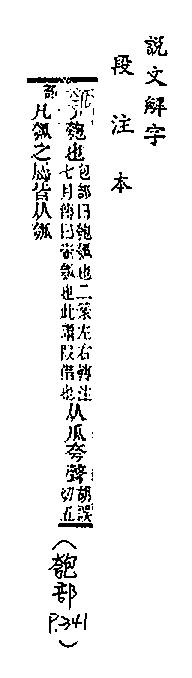 說文解字
段注本
匏也包部曰匏瓠也二篆左右轉注
七月傳曰壺瓠也此謂叚借也从瓜夸聲胡誤切五部
凡瓠之屬皆从瓠
(匏部
P.341)